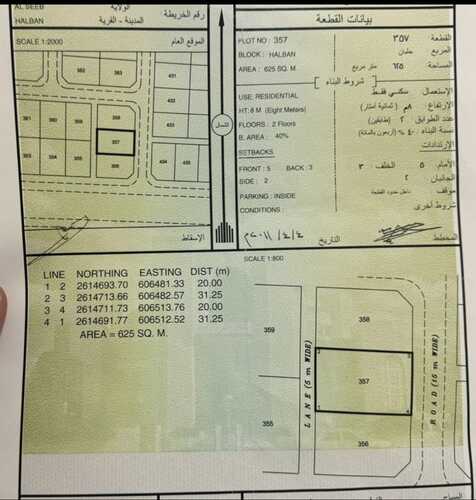 AL SEEB
HALBAN
الولاية
المدينة - القرية
رقم الخريطة
SCALE 1:2000
الموقع العام
382
383
431
432
433
358
357
356
الإسقاط
الشمال
بيانات القطعة
PLOT NO : 357
القطعة ٣٥٧
BLOCK : HALBAN
المربع حلبان
AREA : 625 SQ. M.
المساحة ٦٢٥ متر مربع
شروط البناء
USE: RESIDENTIAL
الإستعمال سكني فقط
HT: 8 M (Eight Meters)
الإرتفاع ٨م (ثمانية أمتار)
FLOORS : 2 Floors
عدد الطوابق ٢ (طابقين)
B. AREA : 40%
نسبة البناء ٤٠٪ (أربعون بالمائة)
SETBACKS
الإرتدادات
FRONT : 5 BACK : 3
الأمام ٥ الخلف ٣
SIDE : 2
الجانبان ٢
PARKING : INSIDE
موقف داخل حدود القطعة
CONDITIONS :
شروط أخرى
المخطط
التاريخ
SCALE 1:800
LINE NORTHING EASTING DIST (m)
1 2 2614693.70 606481.33 20.00
2 3 2614713.66 606482.57 31.25
3 4 2614711.73 606513.76 20.00
4 1 2614691.77 606512.52 31.25
AREA = 625 SQ. M.
359
358
357
355
356
LANE (5 m WIDE)
ROAD (15 m WIDE)